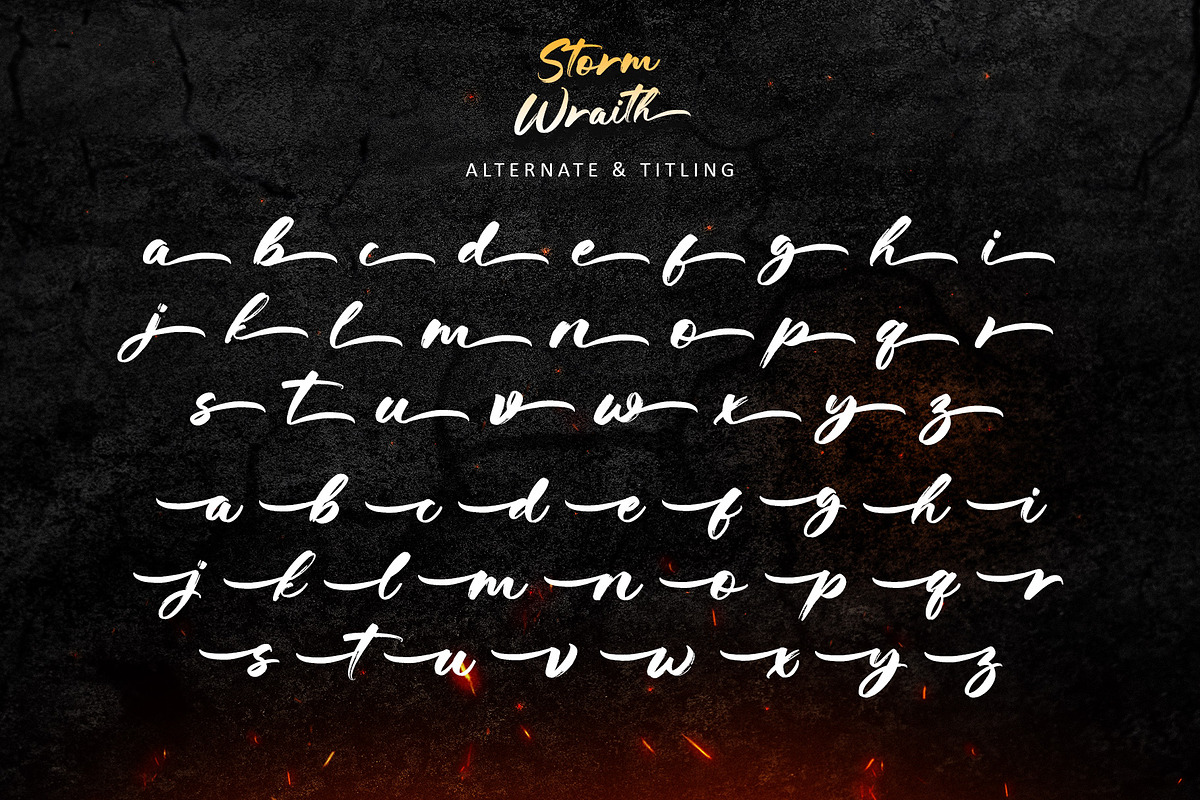 Storm
Wraith
ALTERNATE & TITLING
a b c d e f g h i
j k l m n o p q r
s t u v w x y z
a b c d e f g h i
j k l m n o p q r
s t u v w x y z